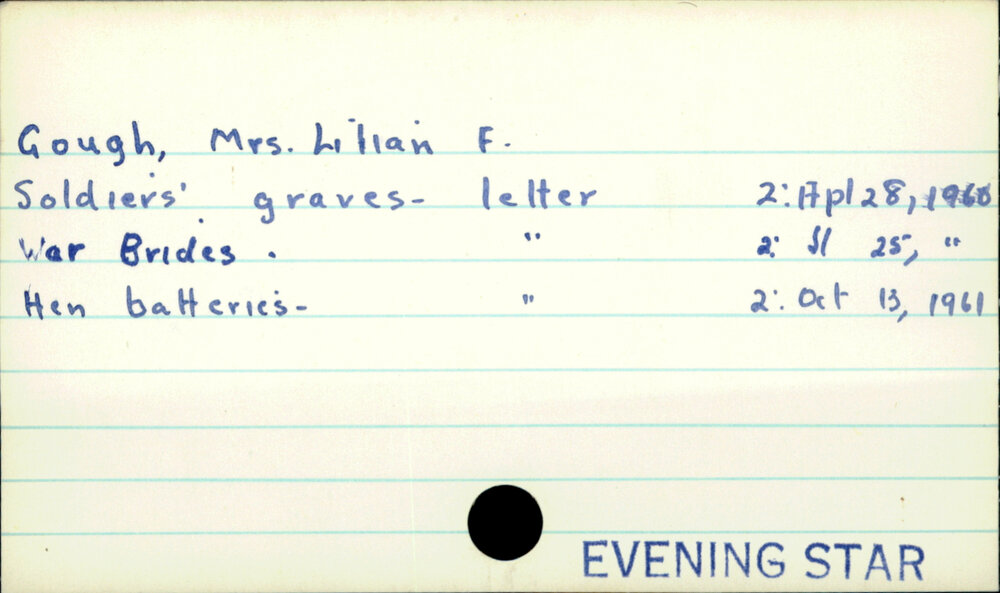 Gough, Mrs. Lilian F.
Soldiers' graves- letter 2: Apl 28, 1960
War Brides. " 2: Jl 25, "
Hen batteries- " 2: Oct 13, 1961
EVENING STAR